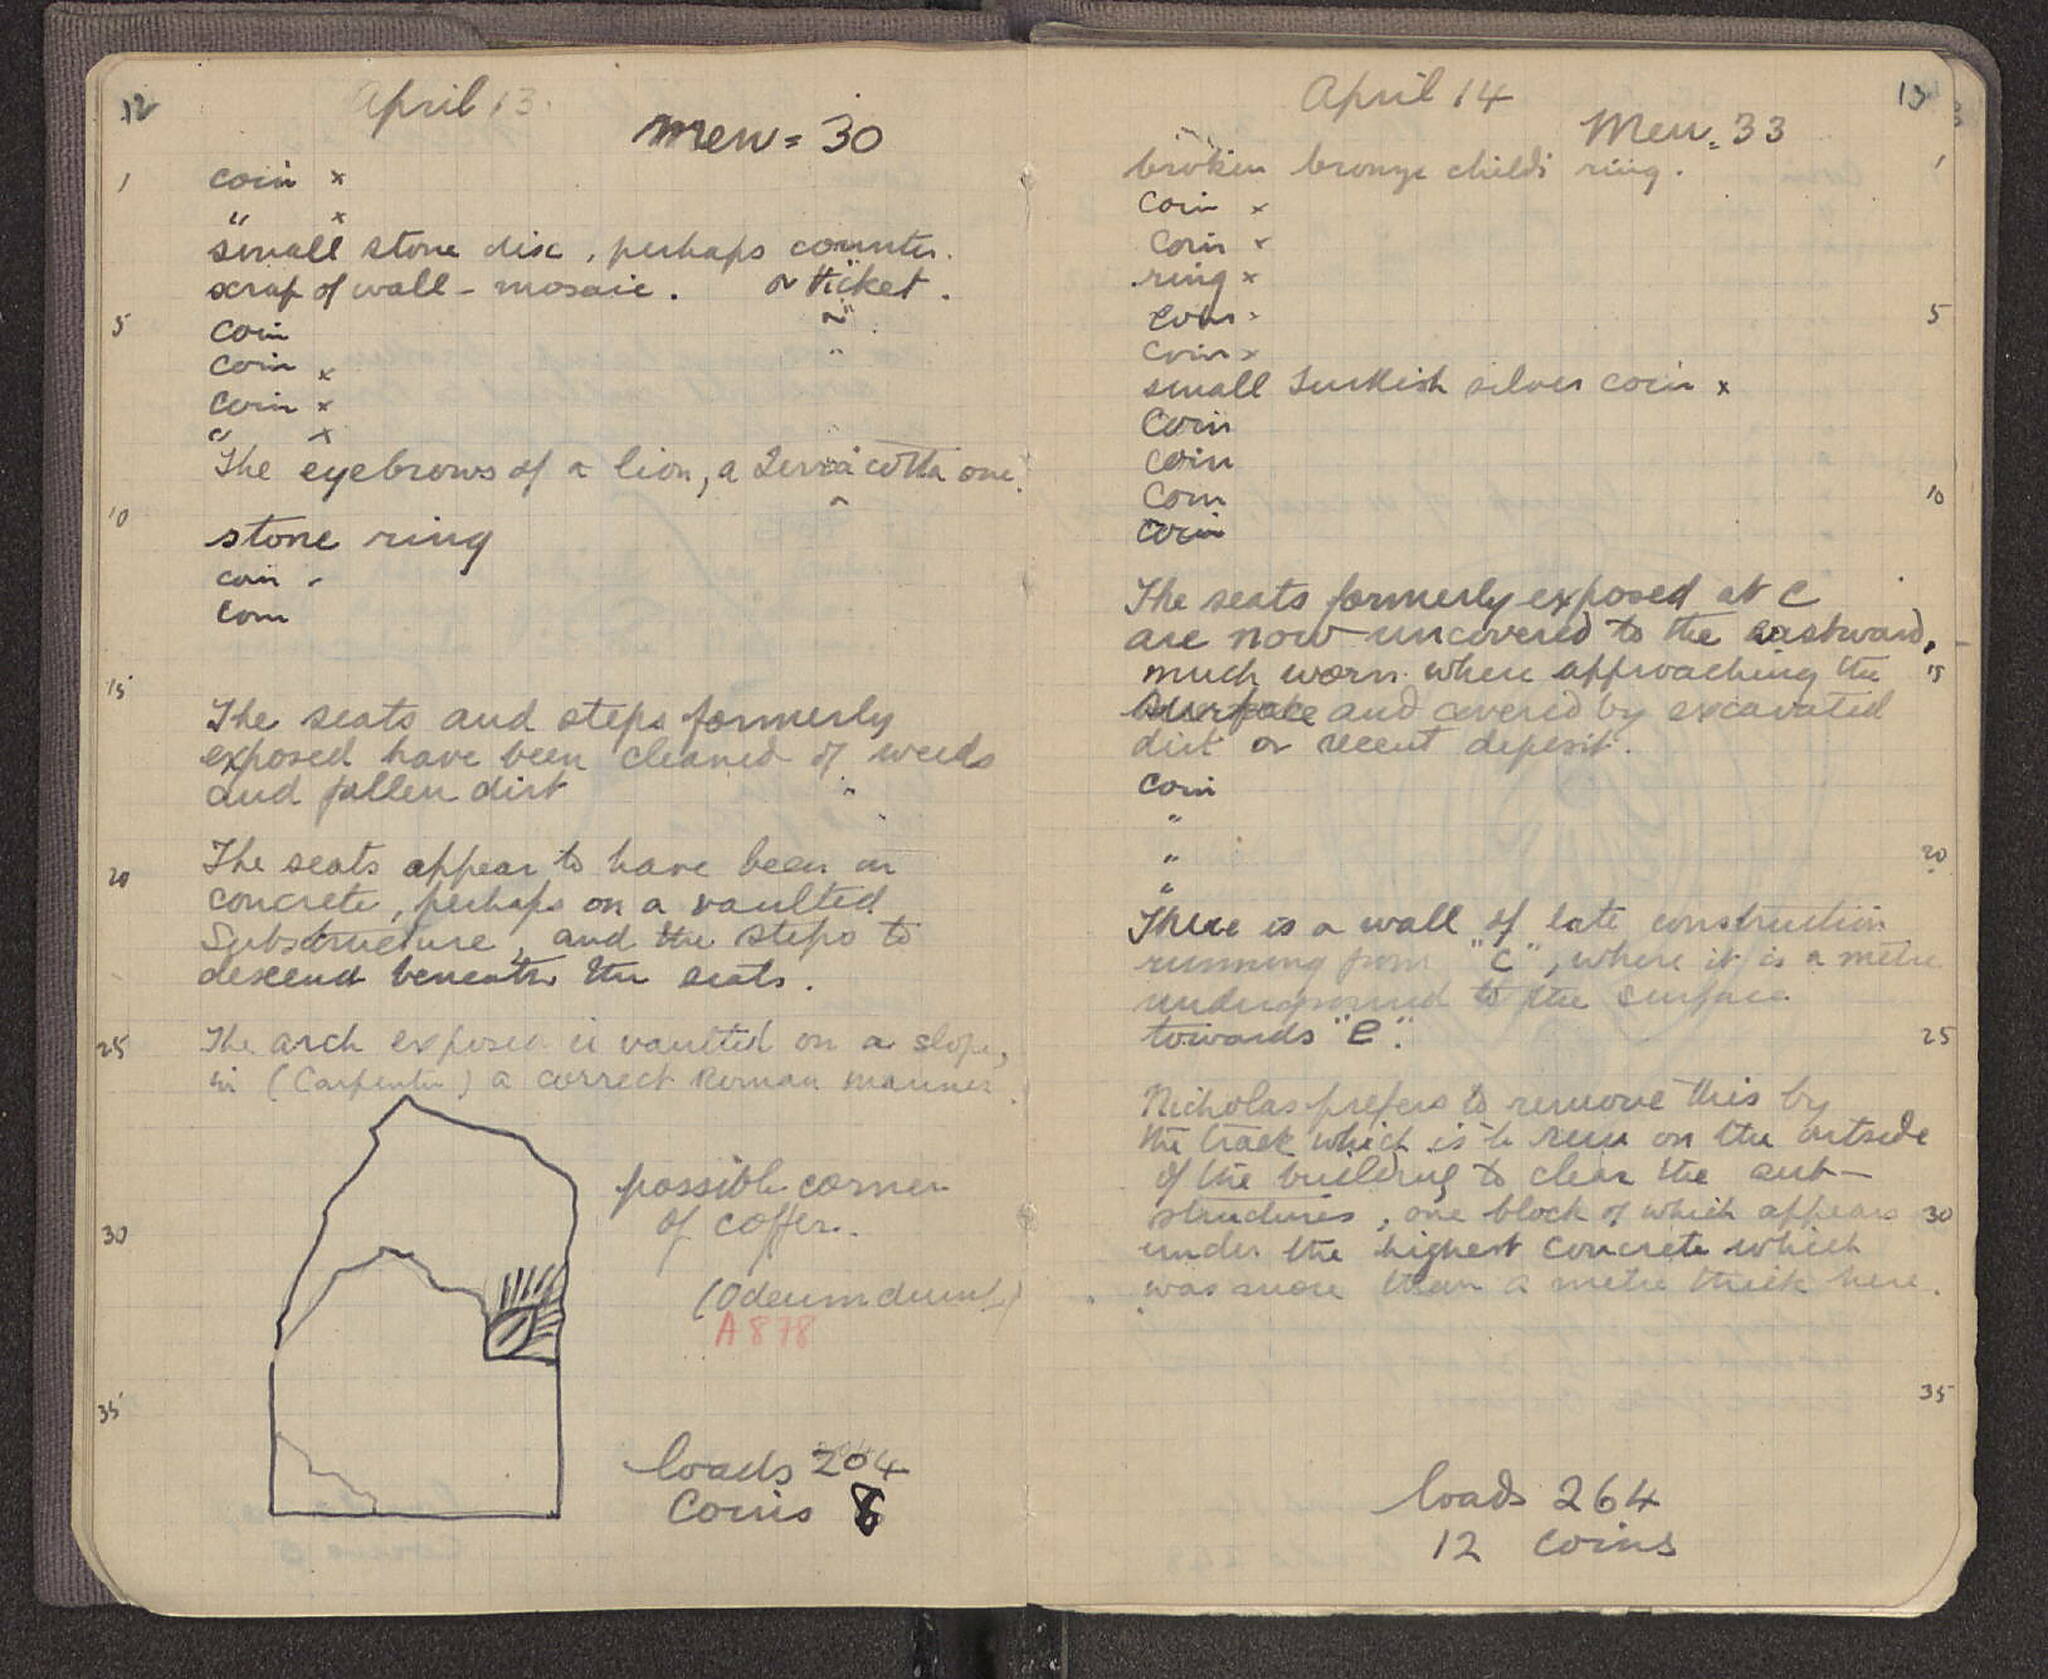 12
April 13.
Men = 30
1 coin x
" x
small stone disc, perhaps counter.
scrap of wall-mosaic. or ticket.
5 coin
coin x
coin x
" x
The eyebrows of a lion, a Terra cotta one.
10
stone ring
coin -
coin
15
The seats and steps formerly
exposed have been cleaned of weeds
and fallen dirt
The seats appear to have been on
20
concrete, perhaps on a vaulted
Substructure, and the steps to
descend beneath the seats.
25 The arch exposed is vaulted on a slope,
in (Carpenter) a correct Roman manner.
possible corner
of coffer.
30
(Odeum dump)
A 878
35
loads 204
Coins 8
13
April 14
Men = 33
broken bronze child's ring. 1
Coin x
Coin x
ring x
Coin - 5
Coin x
small Turkish silver coin x
Coin
Coin
Coin 10
Coin
The seats formerly exposed at C
are now uncovered to the eastward,
much worn where approaching the 15
surface and covered by excavated
dirt or recent deposit.
Coin
"
" 20
"
There is a wall of late construction
running from "C", where it is a metre
underground to the surface
towards "E". 25
Nicholas prefers to remove this by
the track which is to run on the outside
of the building to clear the sub-
structures, one block of which appears 30
under the highest concrete which
was more than a metre thick here.
35
loads 264
12 Coins